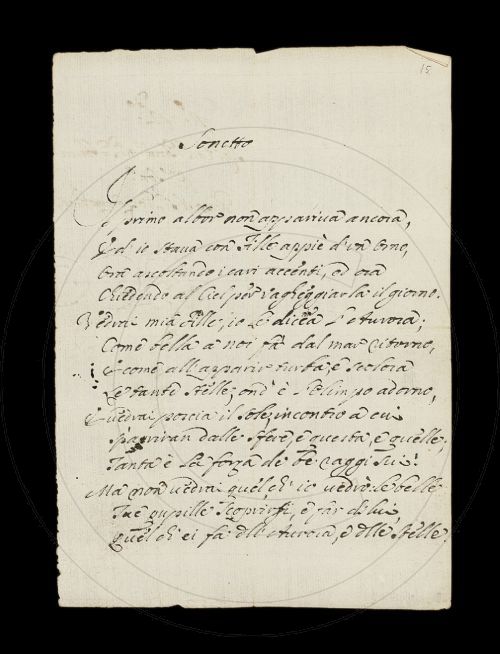 15
Sonetto
Il primo albor non appariva ancora,
Ed io stava con Fille appiè d'un Orno,
Ora ascoltando i cari accenti, ed ora
Chiedendo al Ciel per vagheggiarla il giorno.
Vedrai mia Fille, io le dicea l'Aurora,
Come bella a noi fa dal mar ritorno,
E come all'apparir turba e scolora
Le tante Stelle, ond' è l'Olimpo adorno,
E vedrai poscia il Sole, incontro a cui
Spariran dalle Sfere, e questa, e quelle,
Tanta è la forza de' bei raggi sui!
Ma non vedrai quel, ch' io vedrò: le belle
Tue pupille scoprirsi, e far di lui
Quel ch' ei fa dll' Aurora, e dlle Stelle.